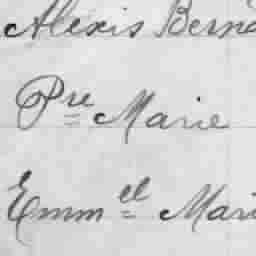 Alexis Berna
Pre Marie
Emmel Mari